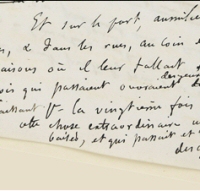 Et sur le port, au milieu
s, & dans les rues, au coin d
aisons où il leur fallait
ois qui passaient ouvraient des yeux
la vingtième fois
chose extraordinaire
et qui passait et
des